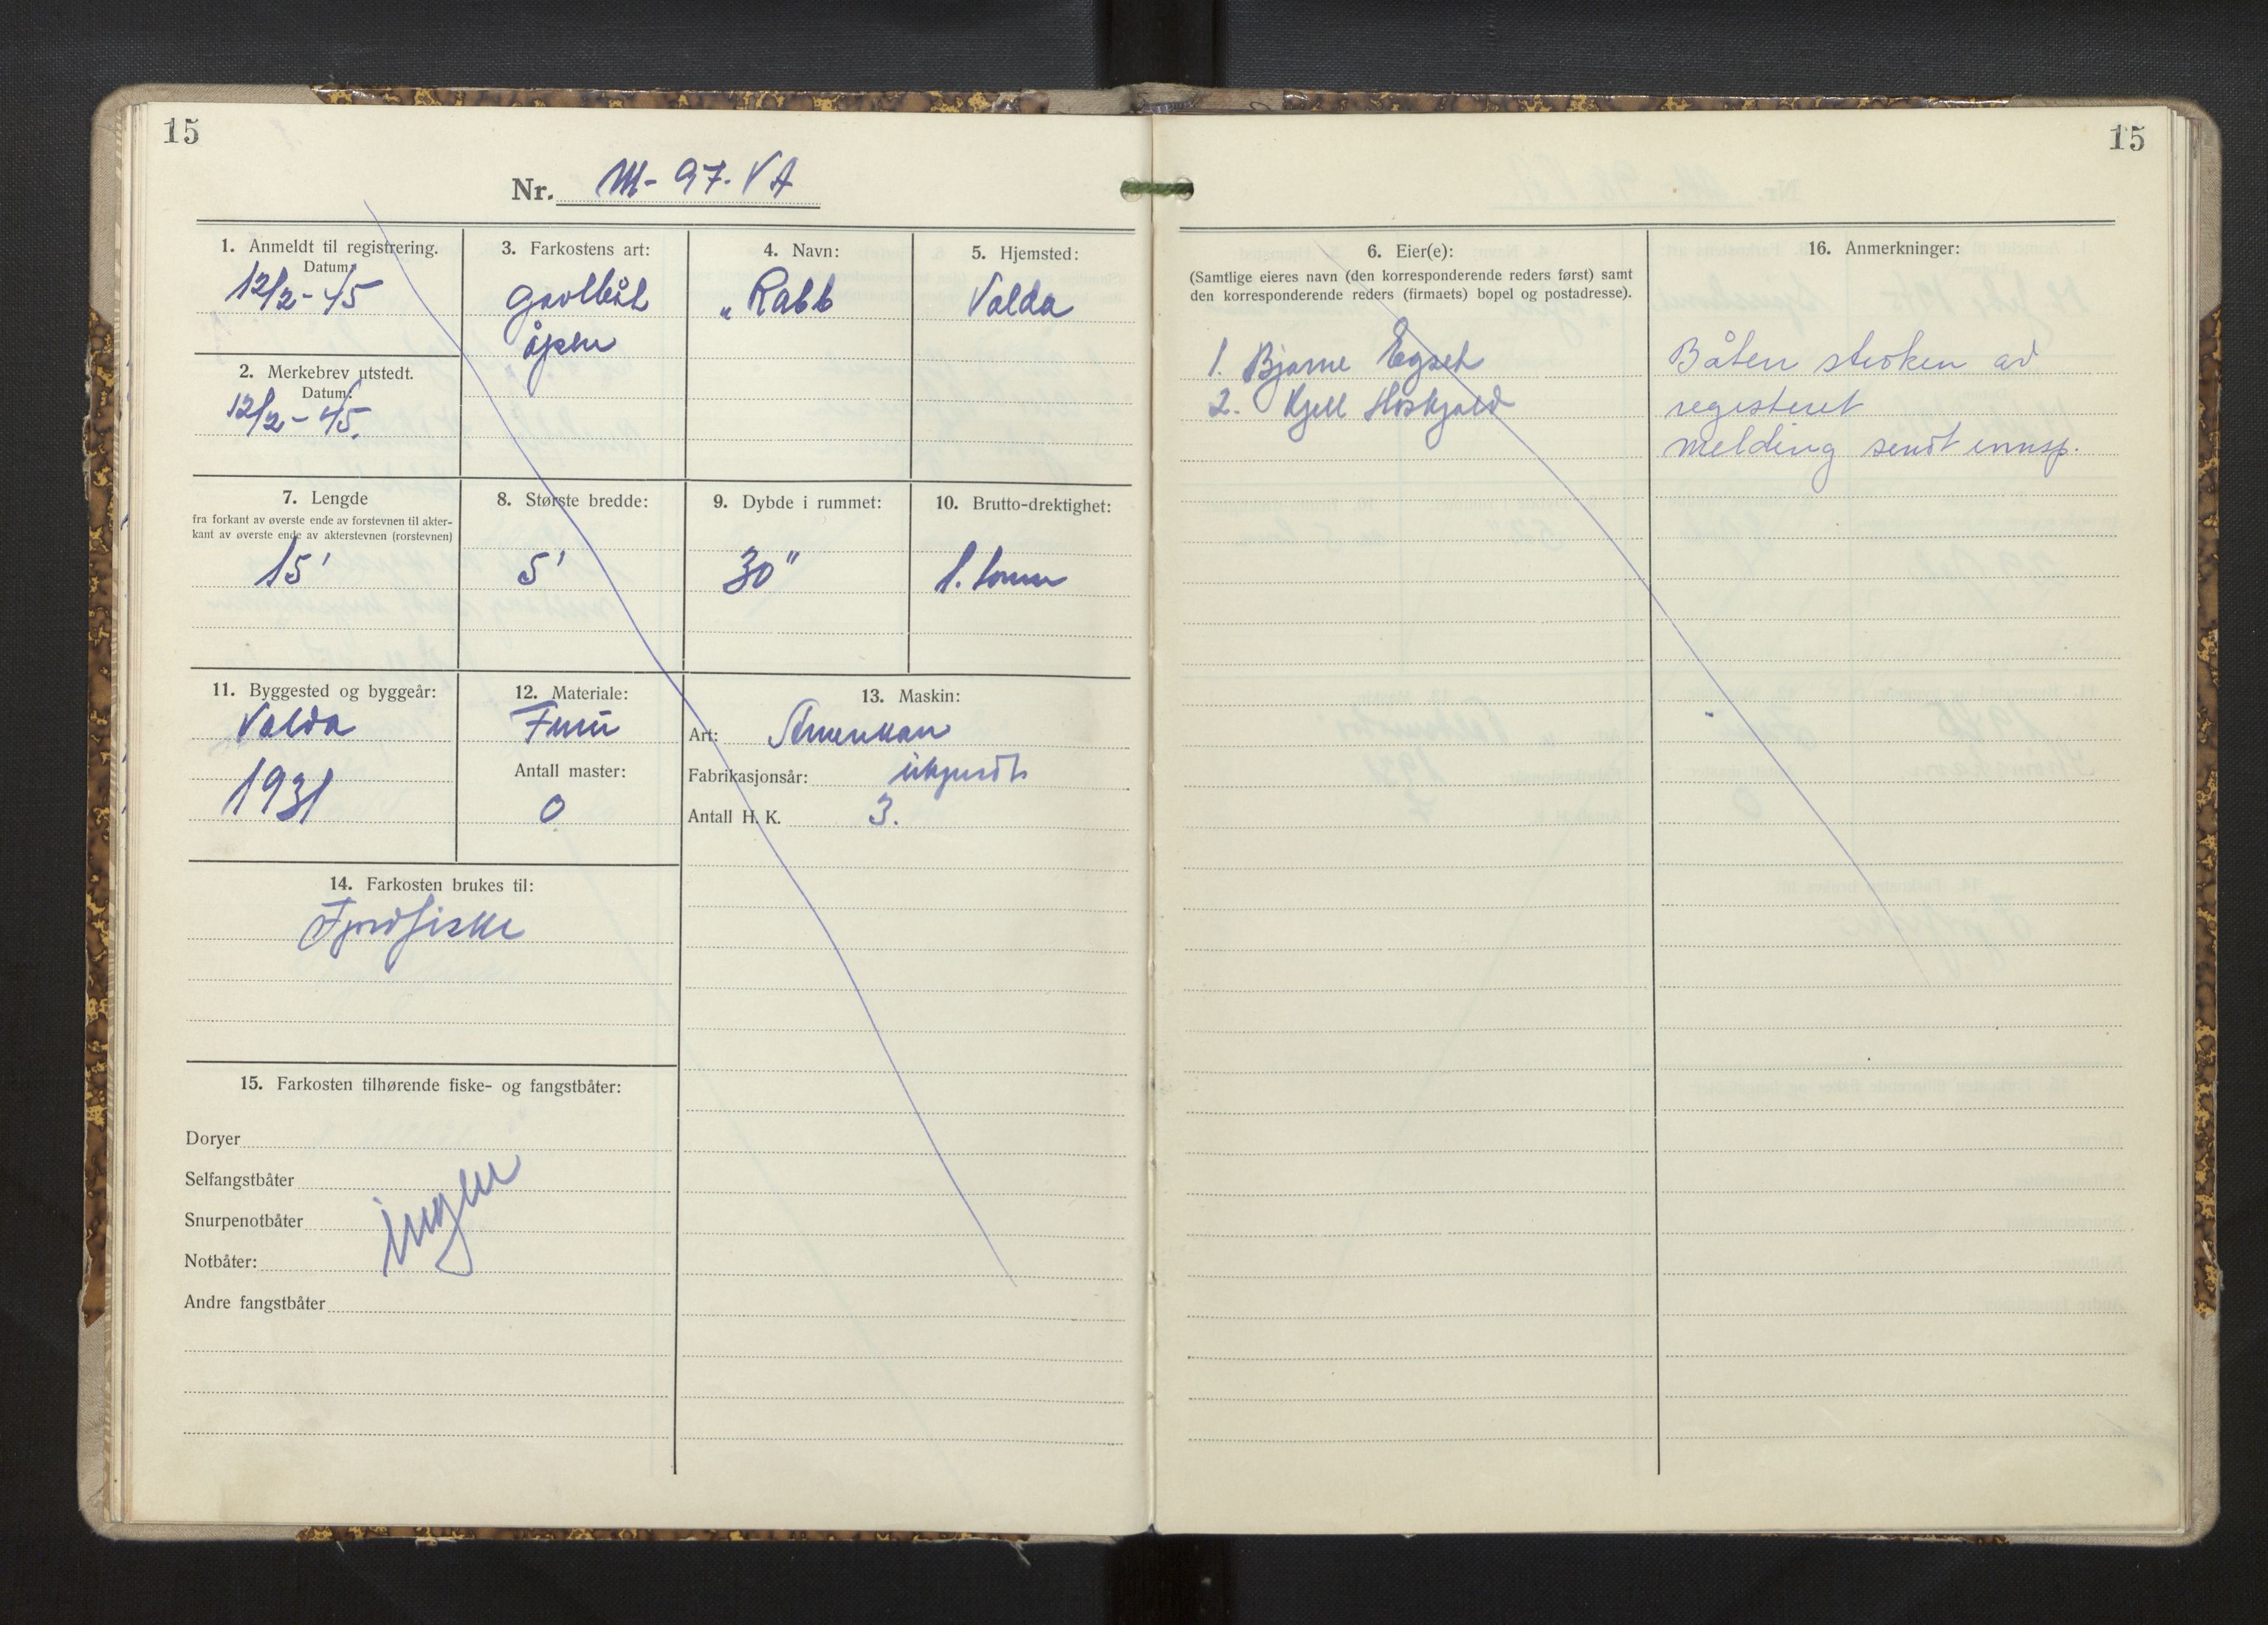 15
Nr. M-97-VA
1. Anmeldt til registrering.
Datum:
12/2-45
2. Merkebrev utstedt.
Datum:
12/2-45.
3. Farkostens art:
gavlbåt
åpen
4. Navn:
"Rabb
5. Hjemsted:
Volda
7. Lengde
fra forkant av øverste ende av forstevnen til akter-
kant av øverste ende av akterstevnen (rorstevnen)
15'
8. Største bredde:
5'
9. Dybde i rummet:
30"
10. Brutto-drektighet:
1. tonn
11. Byggested og byggeår:
Volda
1931
12. Materiale:
Furu
Antall master:
0
13. Maskin:
Art: Amerikan
Fabrikasjonsår: ukjendt
Antall H. K. 3.
14. Farkosten brukes til:
Fjordfiske
15. Farkosten tilhørende fiske- og fangstbåter:
Doryer
Selfangstbåter
Snurpenotbåter
Notbåter:
Andre fangstbåter
ingen
15
6. Eier(e):
(Samtlige eieres navn (den korresponderende reders først) samt
den korresponderende reders (firmaets) bopel og postadresse).
1. Bjarne Egset
2. Kjell
16. Anmerkninger:
Båten strøken av
registeret
melding sendt innsp.